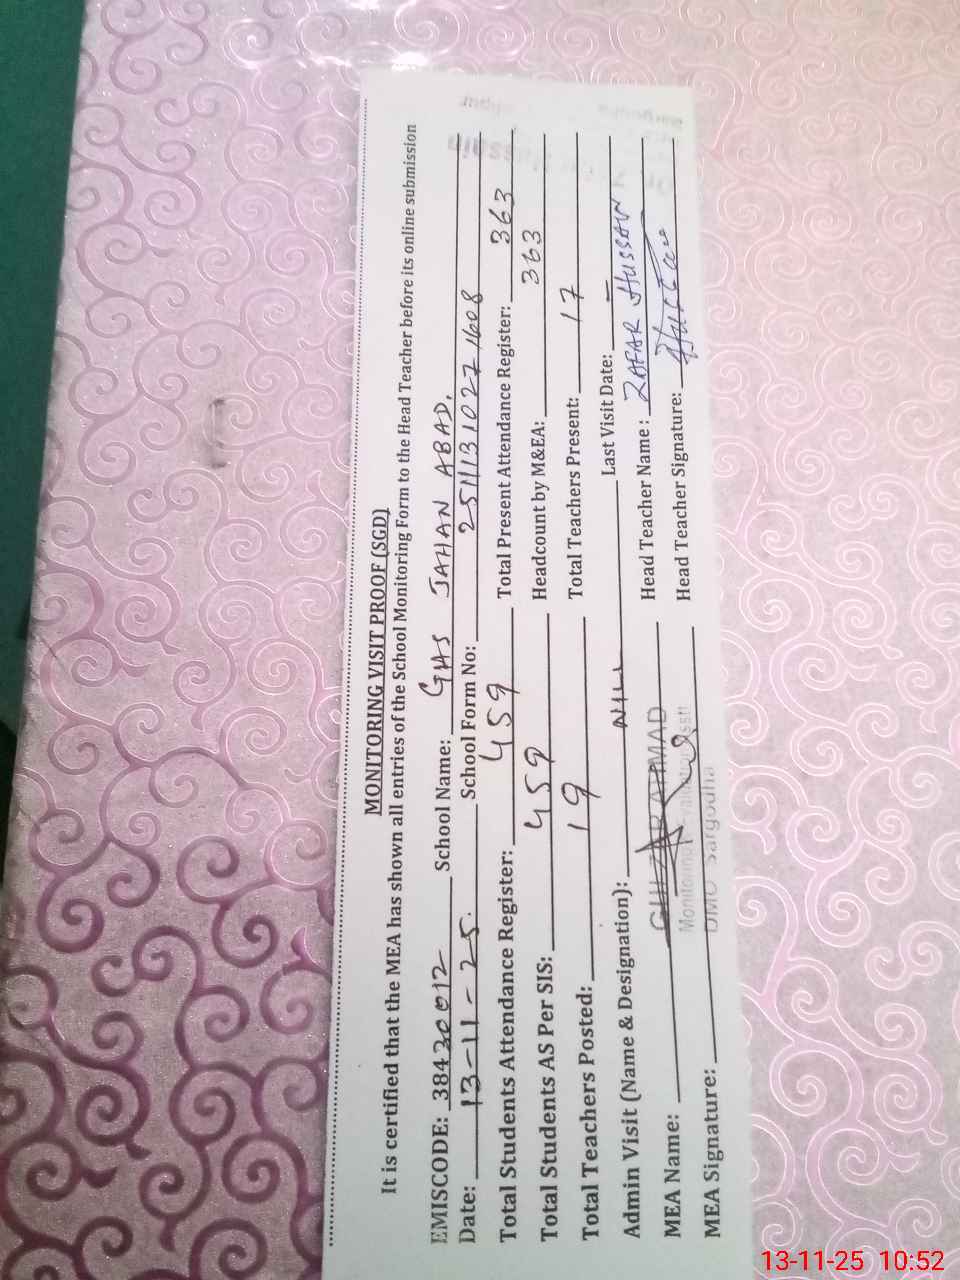 MONITORING VISIT PROOF (SGD)
It is certified that the MEA has shown all entries of the School Monitoring Form to the Head Teacher before its online submission
EMISCODE: 38420012 School Name: GHS JAHAN ABAD.
Date: 13-11-25. School Form No: 251113 1027 1608
Total Students Attendance Register: 459 Total Present Attendance Register: 363
Total Students AS Per SIS: 459 Headcount by M&EA: 363
Total Teachers Posted: 19 Total Teachers Present: 17
Admin Visit (Name & Designation): NILL Last Visit Date: –
MEA Name: AHMAD Head Teacher Name: ZAFAR HUSSAIN
Monitoring
MEA Signature: DMO Sargodha Head Teacher Signature:
13-11-25 10:52